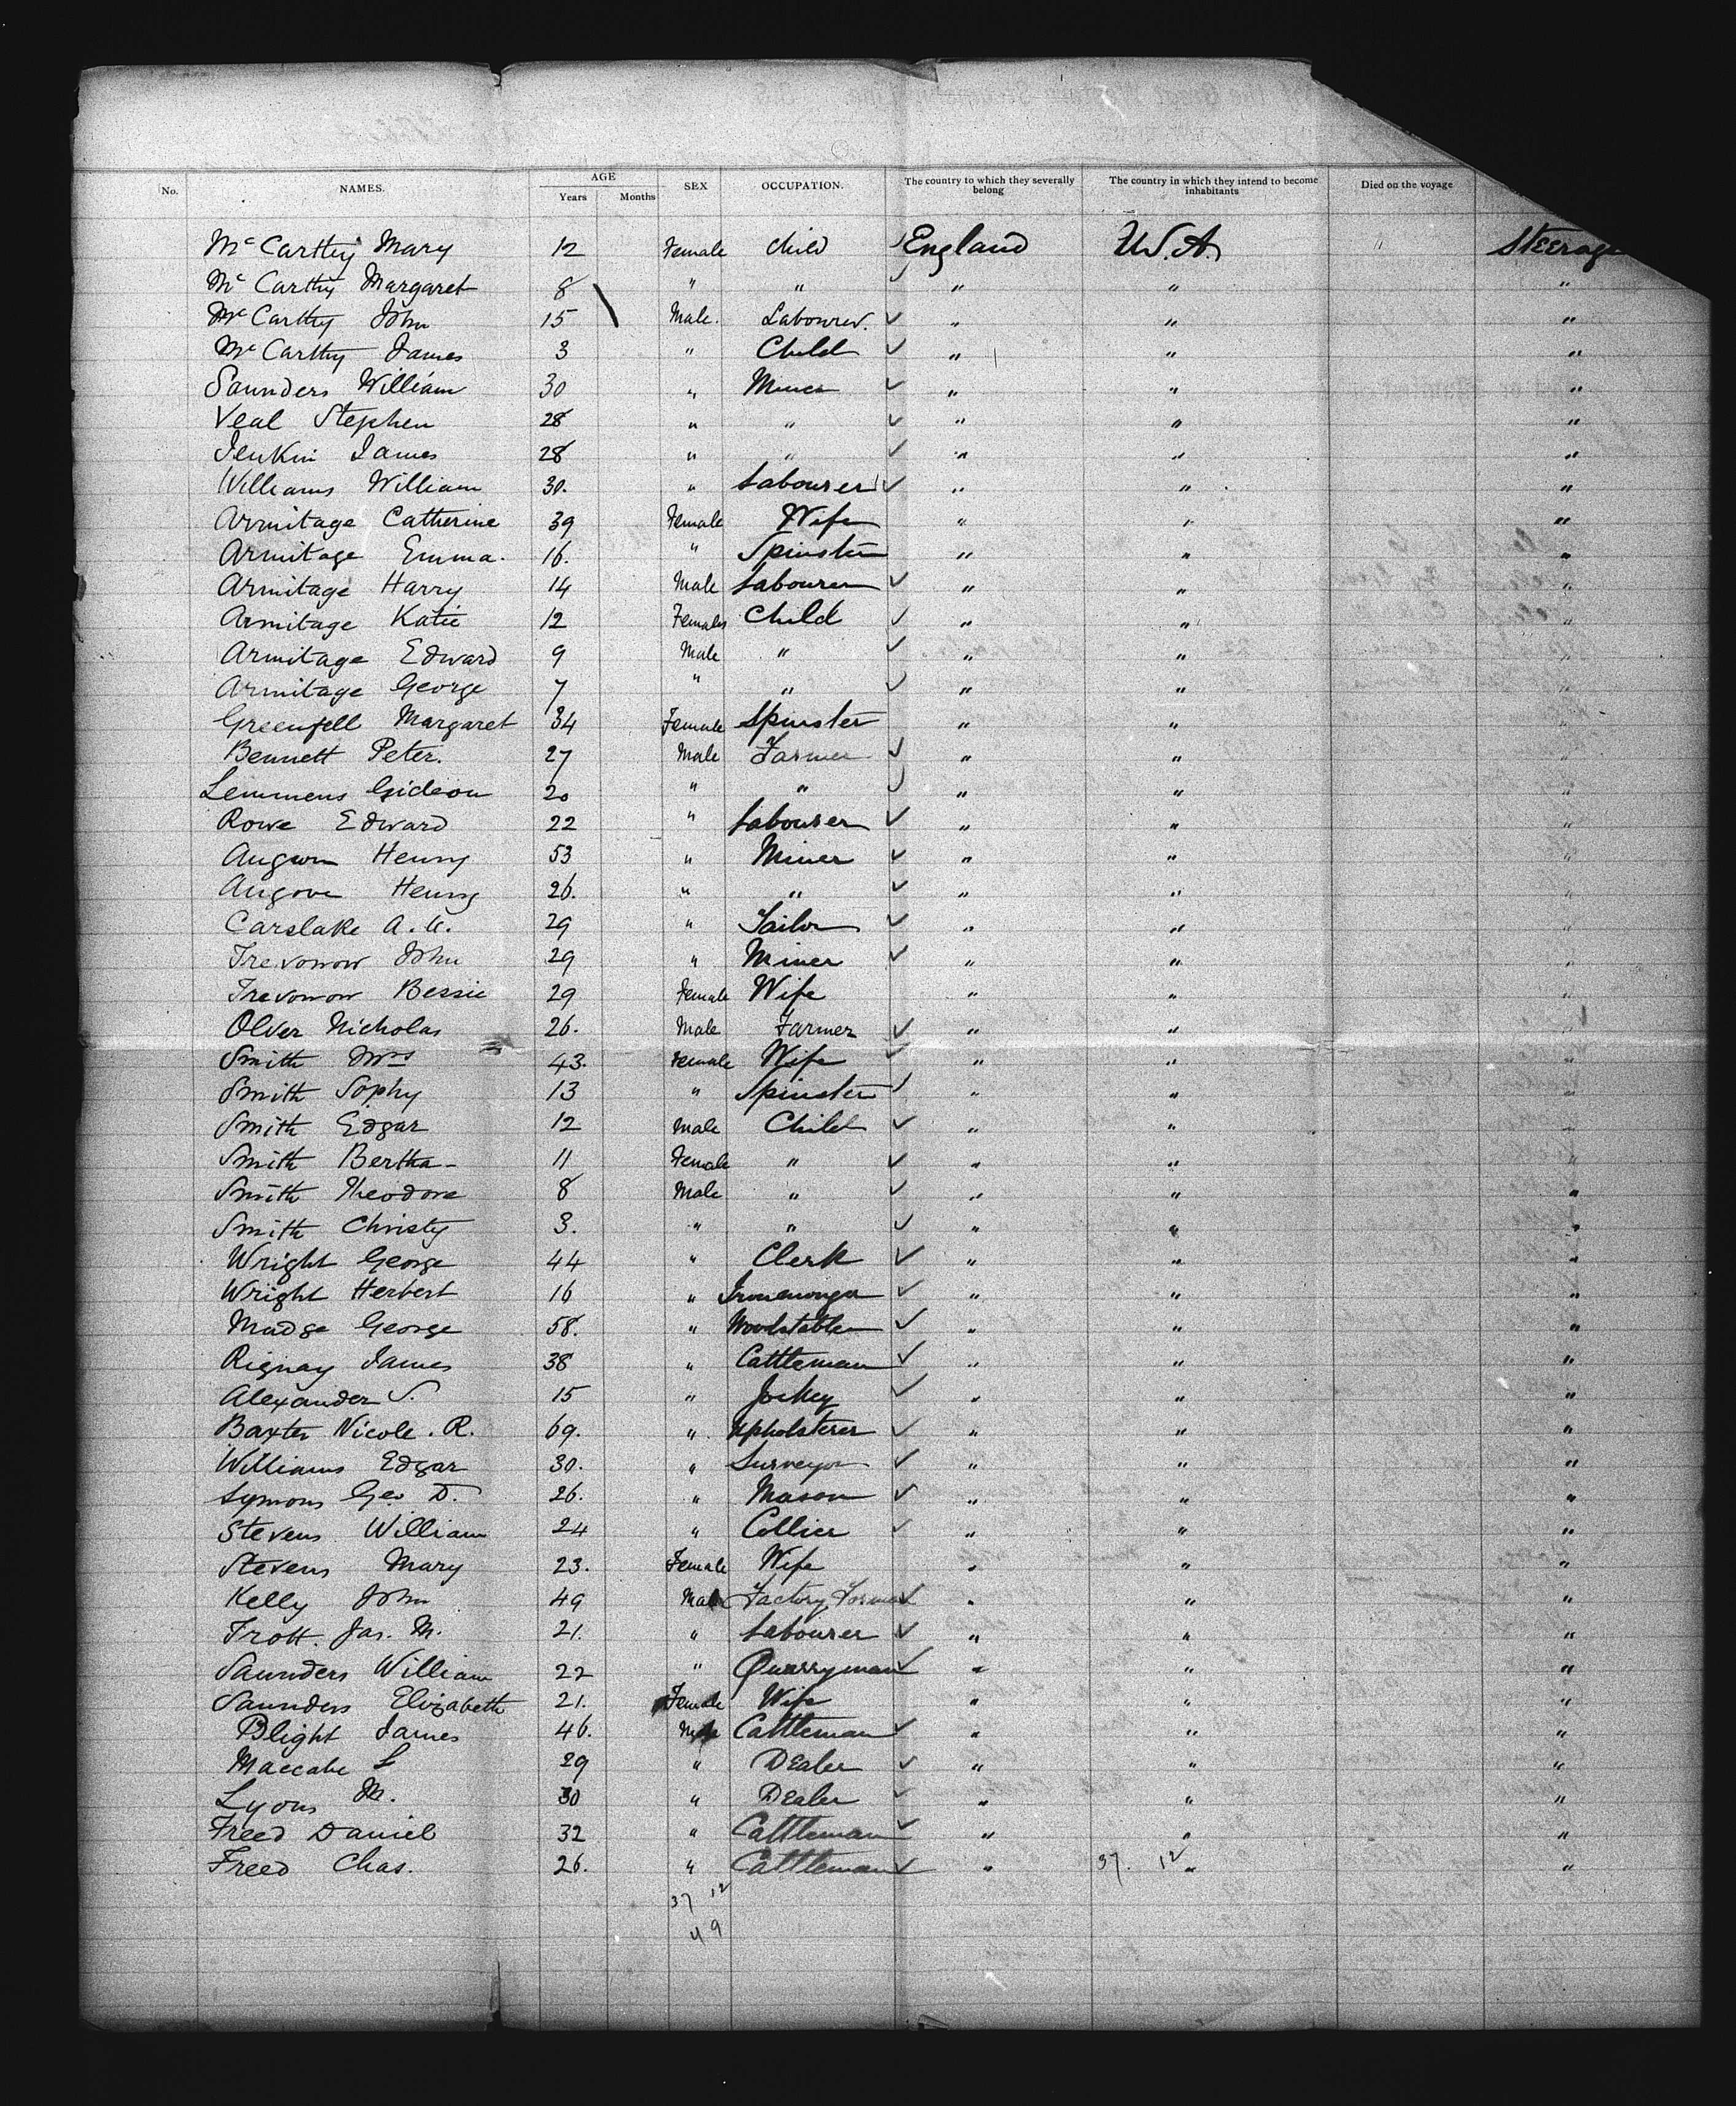 No. NAMES. AGE Years Months SEX OCCUPATION. The country to which they severally belong The country in which they intend to become inhabitants Died on the voyage
Mc Carthy Mary 12 Female Child England U.S.A. Steerage
Mc Carthy Margaret 8 " " " " "
Mc Carthy John 15 Male. Labourer. " " "
Mc Carthy James 3 " Child " " "
Saunders William 30 " Miner " " "
Veal Stephen 28 " " " " "
Jenkin James 28 " " " " "
Williams William 30. " Labourer " " "
Armitage Catherine 39 Female Wife " " "
Armitage Emma. 16. " Spinster " " "
Armitage Harry 14 Male Labourer " " "
Armitage Katie 12 Female Child " " "
Armitage Edward 9 Male " " " "
Armitage George 7 " " " " "
Greenfell Margaret 34 Female Spinster " " "
Bennett Peter. 27 Male Farmer " " "
Lemmens Gideon 20 " " " " "
Rowe Edward 22 " Labourer " " "
Henry 53 " Miner " " "
Angove Henry 26. " " " " "
Carslake A. 29 " Tailor " " "
John 29 " Miner " " "
Bessie 29 Female Wife " " "
Oliver Nicholas 26. Male Farmer " " "
Smith Mrs 43. Female Wife " " "
Smith Sophy 13 " Spinster " " "
Smith Edgar 12 Male Child " " "
Smith Bertha 11 Female " " " "
Smith Theodore 8 Male " " " "
Smith Christy 3. " " " " "
Wright George 44 " Clerk " " "
Wright Herbert 16 " Ironmonger " " "
Madge George 58. " " " "
Rignay James 38 " Cattleman " " "
Alexander S. 15 " Jockey " " "
Baxter Nicole. R. 69. " Upholsterer " " "
Williams Edgar 30. " Surveyor " " "
Symons Geo D. 26. " Mason " " "
Stevens William 24 " Collier " " "
Stevens Mary 23. Female Wife " " "
Kelly John 49 Male Factory " " "
Trott. Jas. M. 21. " Labourer " " "
Saunders William 22 " Quarryman " " "
Saunders Elizabeth 21. Female Wife " " "
Blight James 46. Male Cattleman " " "
Maccabe L 29 " Dealer " " "
Lyons M. 30 " Dealer " " "
Freed Daniel 32 " Cattleman " " "
Freed Chas. 26. " Cattleman " 37. 12 " "
37 12
49